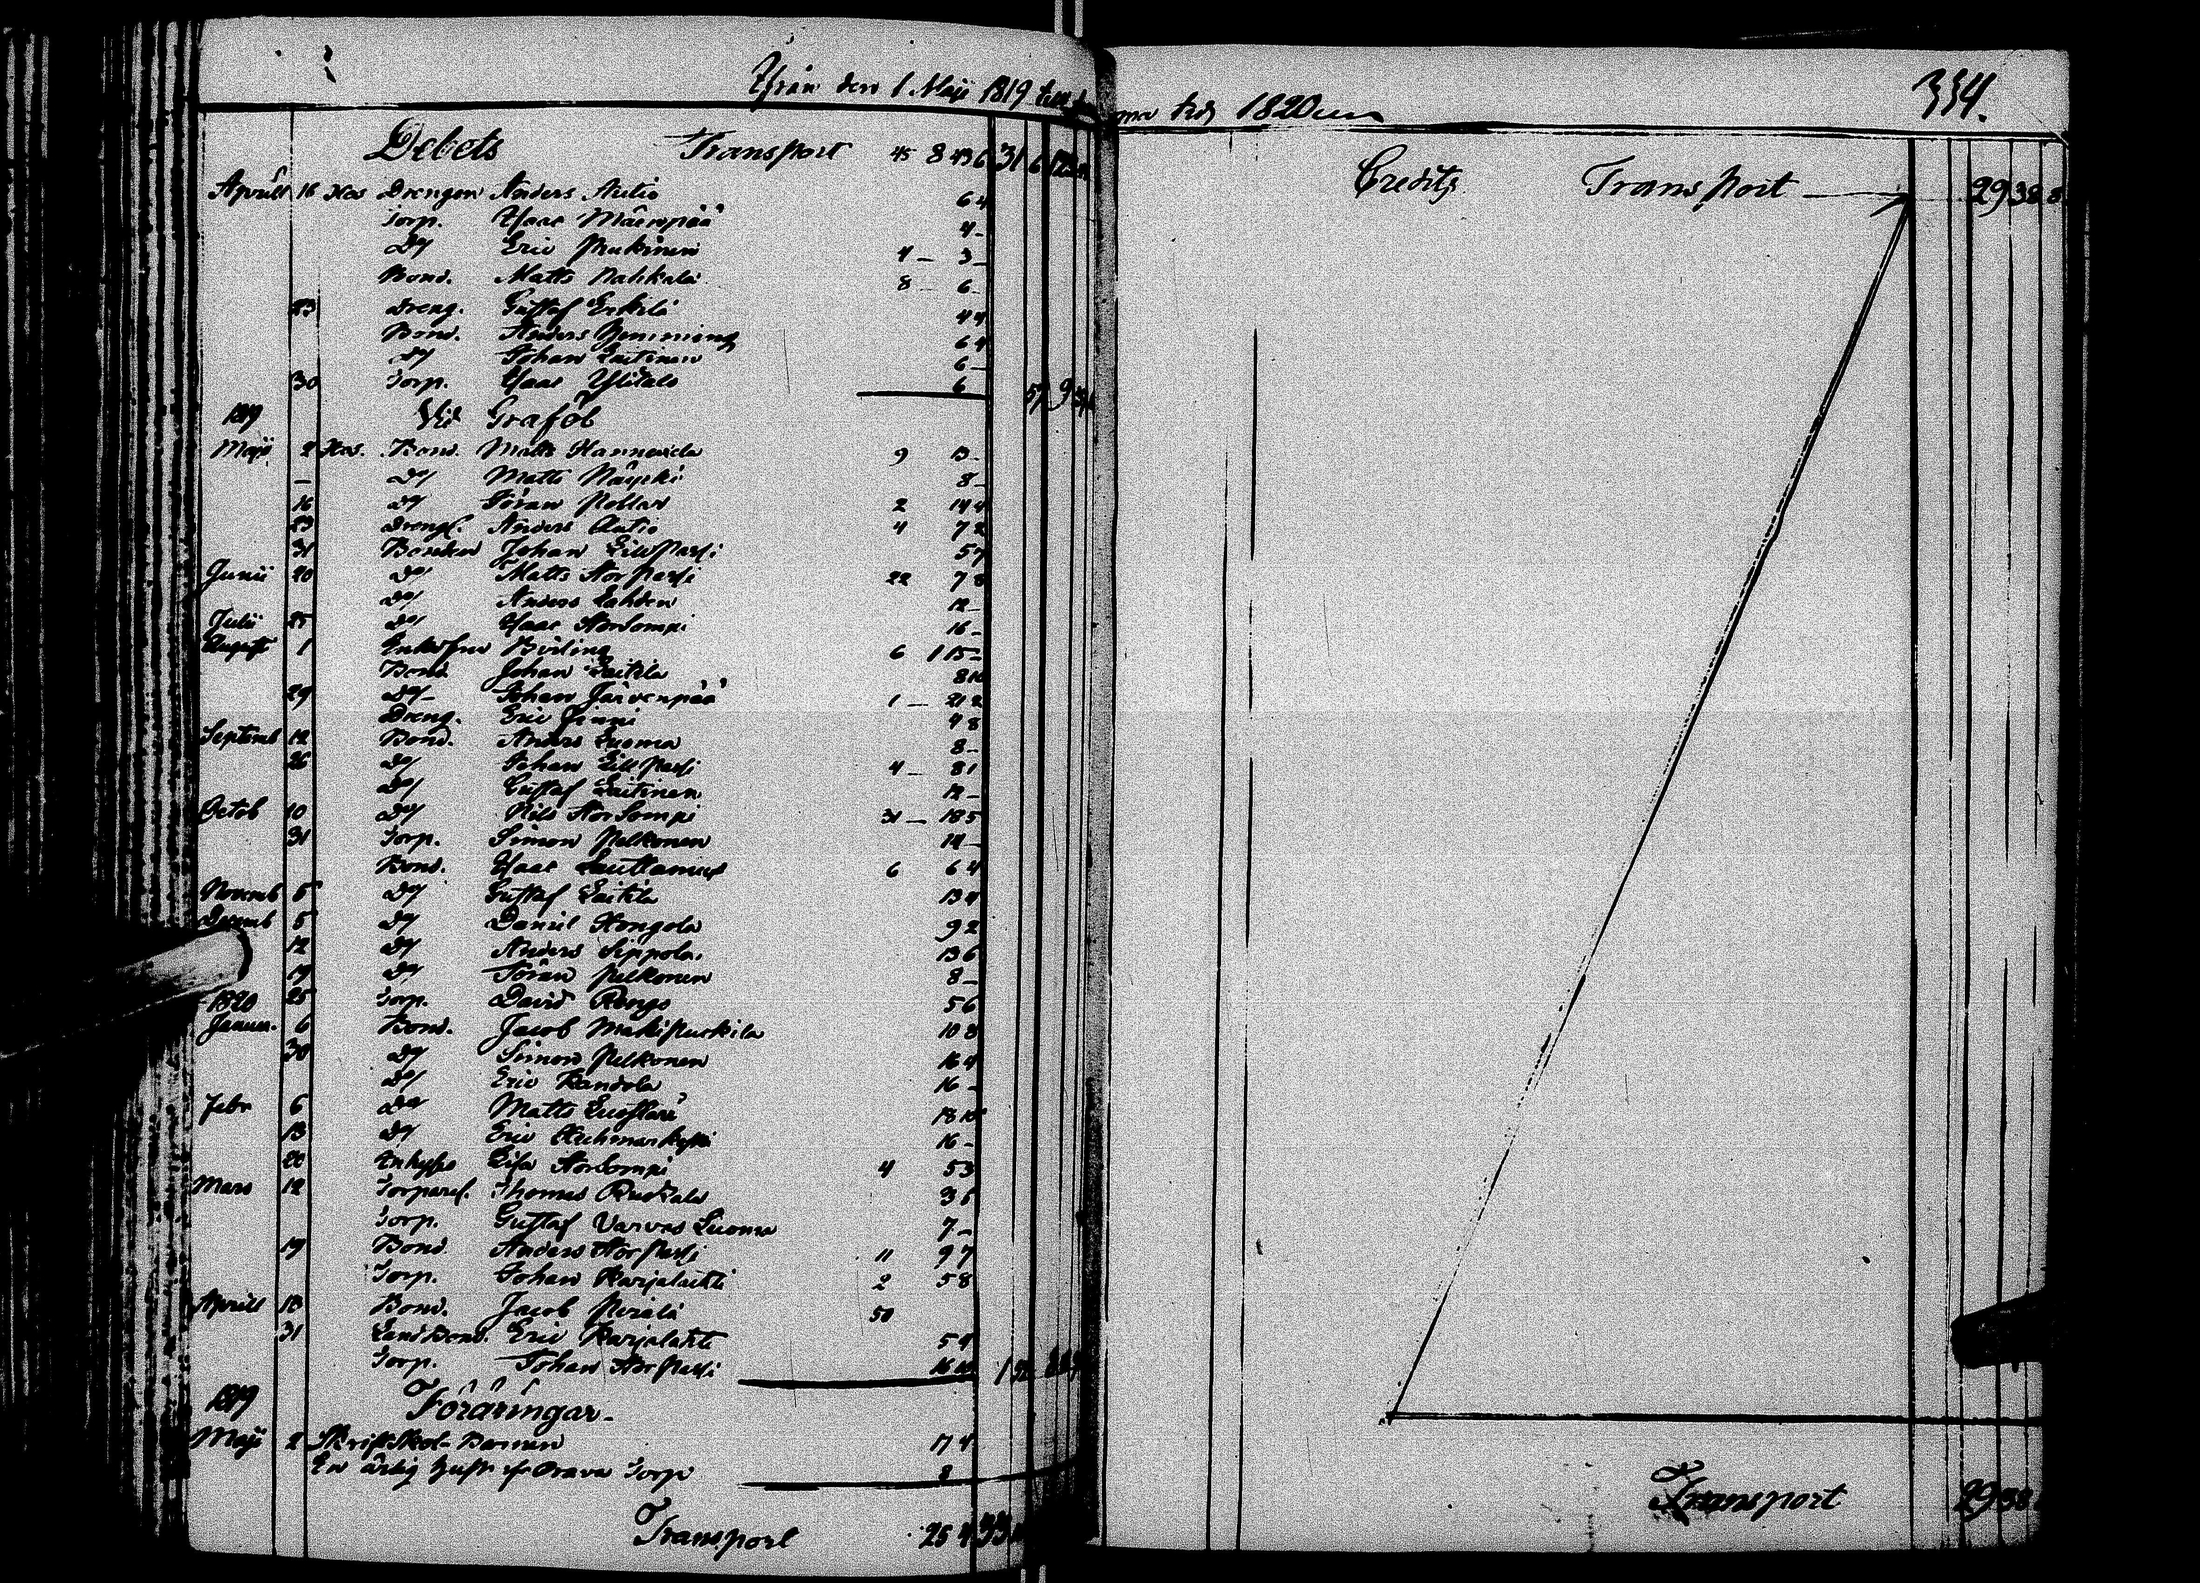 Ifrån den 1 Maji 1819 till
Debets Transport 45 8 43 6 31 6
Aprill 16 Hos Drengen Anders Autio 6 4
Torp. Isaac Mäenpää 4 –
Do/ Eric Mukinen 4 – 3 –
Bond. Matts Palikala 8 – 6 –
23 Dreng. Gustaf Erkilä 4 4
Bond. Anders Hemming 6 4
Do/ Johan Laitinen 6 –
30 Torp. Isaac Ylitalo 6
1819 Vid Graföl
Maji 2 Hos. Bond. Matts Hannuxela 9 13 –
– Do/ Matts Näxpki 8 –
16 Do/ Göran 2 14 4
23 Drengl. Anders Autio 4 7 2
31 Bonden Johan LillPassi 5 7
Junii 20 Do/ Matts StorPassi 22 7 8
Do/ Anders Lahden 12 –
Julii 25 Do/ Isaac StorSompi 16 –
Augusti 1 Enkefru 6 1 15 –
Bond. Johan Laitila 8 10
29 Do/ Johan Järvenpää 1 – 21 2
Dreng. Eric 4 8
Septemb 12 Bond. Anders Luoma 8 –
26 Do/ Johan LillPassi 4 – 8 1
Do/ Gustaf Laitinen 12 –
Octob 10 Do/ Nils StorSompi 31 – 18 5
31 Torp. Simon Pelkonen 14 –
Bond. Isaac Lauttamus 6 6 4
Novemb 5 Do/ Gustaf Laitila 13 4
Decemb 5 Do/ Daniel Kongola 9 2
12 Do/ Anders Sippola. 13 6
19 Do/ Göran Pelkonen 8 –
1820 25 Torp. David Rengo 5 6
Janua. 6 Bond. Jacob MakiPuckila 10 8
30 Do/ Simon Pelkonen 16 4
Do/ Eric Kandola 16 –
Febr 6 Do/ Matts 18 10
13 Do/ Eric 16 –
20 Lisa StorSompi 4 5 3
Mars 12 Torparef. Thomas 3 6
Torp. Gustaf Varvas Luoma 7 –
19 Bond Anders StorPassi 11 9 7
Torp. Johan Karjalahti 2 5 8
Aprill 13 Bond. Jacob Perälä 50
31 LandBond. Eric Karjalahti 5 4
Torp. Johan StorPassi 16 10
1819 Föräringar
Maji 2 Skriftskol-Barnen 17 4
En ärlig Orava Torp 8
Transport 25 4
ma tid 1820
334.
Credits Transport 29 38 8
Transport 29 38